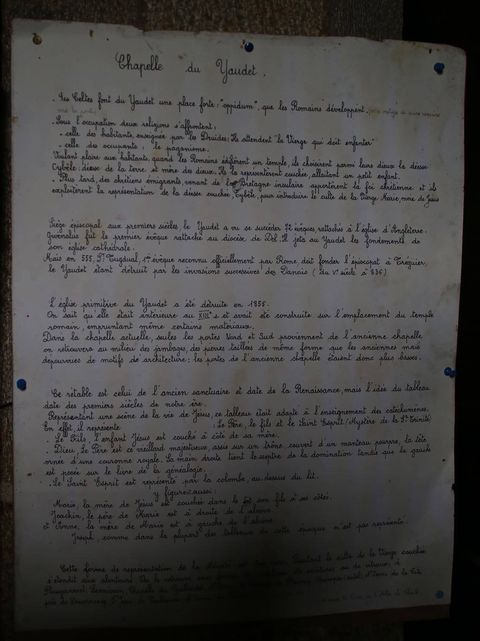 Chapelle du Yaudet.
. Les Celtes font du Yaudet une place forte: "oppidum", que les Romains développent.
. Sous l'occupation deux religions s'affrontent:
- celle des habitants, enseignée par les Druides: Ils attendent "la Vierge qui doit enfanter"
- celle des occupants: le paganisme.
Voulant plaire aux habitants, quand les Romains édifièrent un temple, ils choisirent parmi leurs dieux la déesse
Cybèle: déesse de la terre, et mère des dieux. Ils la représentèrent couchée, allaitant un petit enfant.
. Plus tard, des chrétiens émigrants, venant de la Bretagne insulaire apportèrent la foi chrétienne et ils
exploitèrent la représentation de la déesse couchée, Cybèle, pour introduire le culte de la Vierge Marie, mère de Jésus
Siège épiscopal aux premiers siècles le Yaudet a vu se succéder 72 évêques rattachés à l'église d'Angleterre.
fut le premier évêque rattaché au diocèse de Dol. Il jeta au Yaudet les fondements de
son église cathédrale.
Mais en 555, St Tugdual, 1er évêque reconnu officiellement par Rome, doit fonder l'épiscopat à Tréguier,
le Yaudet étant détruit par les invasions successives des Danois (du Ve siècle à 836)
L'église primitive du Yaudet a été détruite en 1855.
On sait qu'elle était antérieure au XIIIe s et avait été construite sur l'emplacement du temple
romain, empruntant même certains matériaux.
Dans la chapelle actuelle, seules les portes Nord et Sud proviennent de l'ancienne chapelle
on retrouvera au milieu des jambages, des pierres taillées de même forme que les anciennes mais
dépourvues de motifs de architecture: les portes de l'ancienne chapelle étaient donc plus basses.
Ce rétable est celui de l'ancien sanctuaire et date de la Renaissance, mais l'idée du tableau
date des premiers siècles de notre ère.
Représentant une scène de la vie de Jésus, ce tableau était adapté à l'enseignement des catéchumènes.
En effet il représente : Le Père, le fils et le Saint Esprit (Mystère de la Ste Trinité)
. Le Fils, l'enfant Jésus est couché à côté de sa mère.
. Dieu Le Père est ce vieillard majestueux, assis sur un trône couvert d'un manteau pourpre, la tête
ornée d'une couronne royale. La main droite tient le sceptre de la domination tandis que la gauche
est posée sur le livre de la généalogie.
. Le Saint Esprit est représenté par la colombe, au-dessus du lit.
Y figure aussi:
Marie, la mère de Jésus est couchée dans le lit son fils à ses côtés.
Joachim, le père de Marie est à droite de l'alcove
et Anne, la mère de Marie est à gauche de l'alcove.
Joseph, comme dans la plupart des tableaux de cette époque n'est pas représenté.
Cette forme de représentation de la le culte de la Vierge couchée
s'étendit aux alentours. On le retrouve